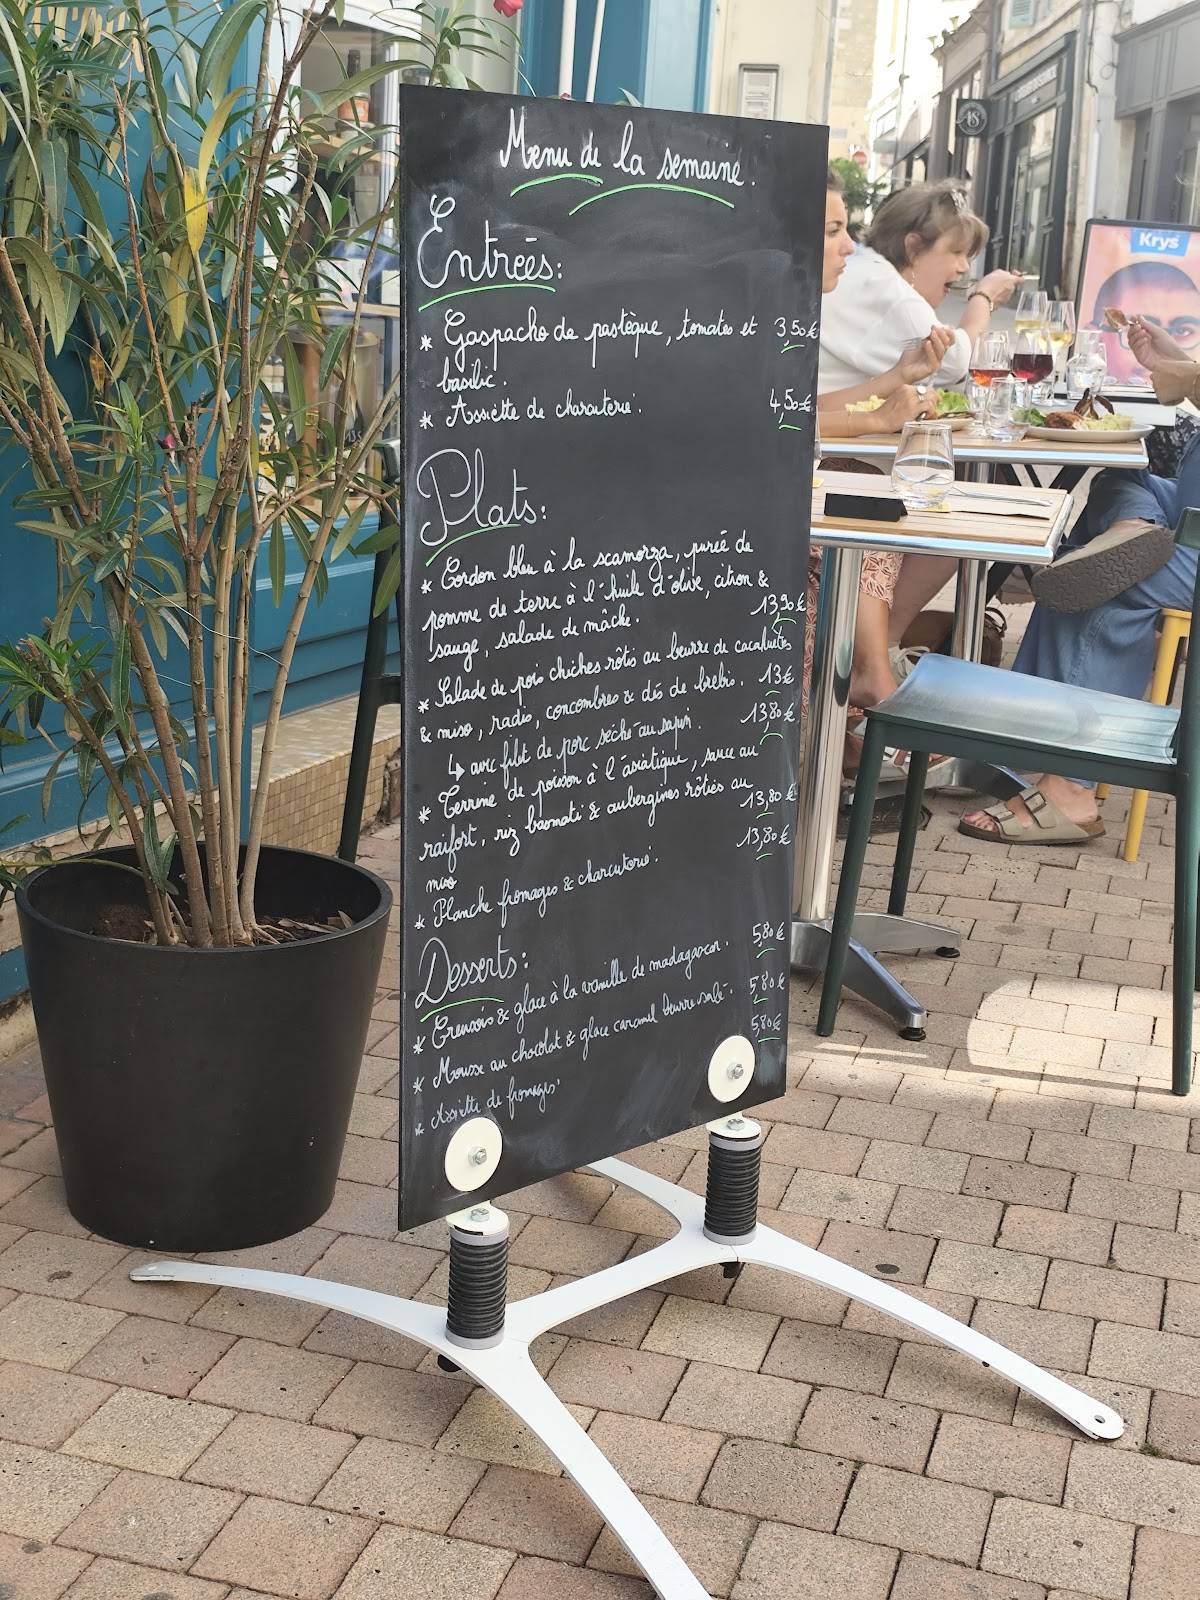 Menu de la semaine.
Entrées:
* Gaspacho de pastèque, tomates et 3,50€
basilic.
* Assiette de charcuterie. 4,50€
Plats:
* Cordon bleu à la scamorza, purée de
pomme de terre à l'huile d'olive, citron &
sauge, salade de mâche. 13,90€
* Salade de pois chiches rôtis au beurre de cacahuètes
& miso, radis, concombres & dés de brebis. 13€
↳ avec filet de porc séché au sapin. 13,80€
* Terrine de poisson à l'asiatique, sauce au
raifort, riz basmati & aubergines rôties au 13,80€
miso
* Planche fromages & charcuterie. 13,80€
Desserts:
* & glace à la vanille de madagascar. 5,80€
* Mousse au chocolat & glace caramel beurre salé. 5,80€
* Assiette de fromages. 5,80€
Krys